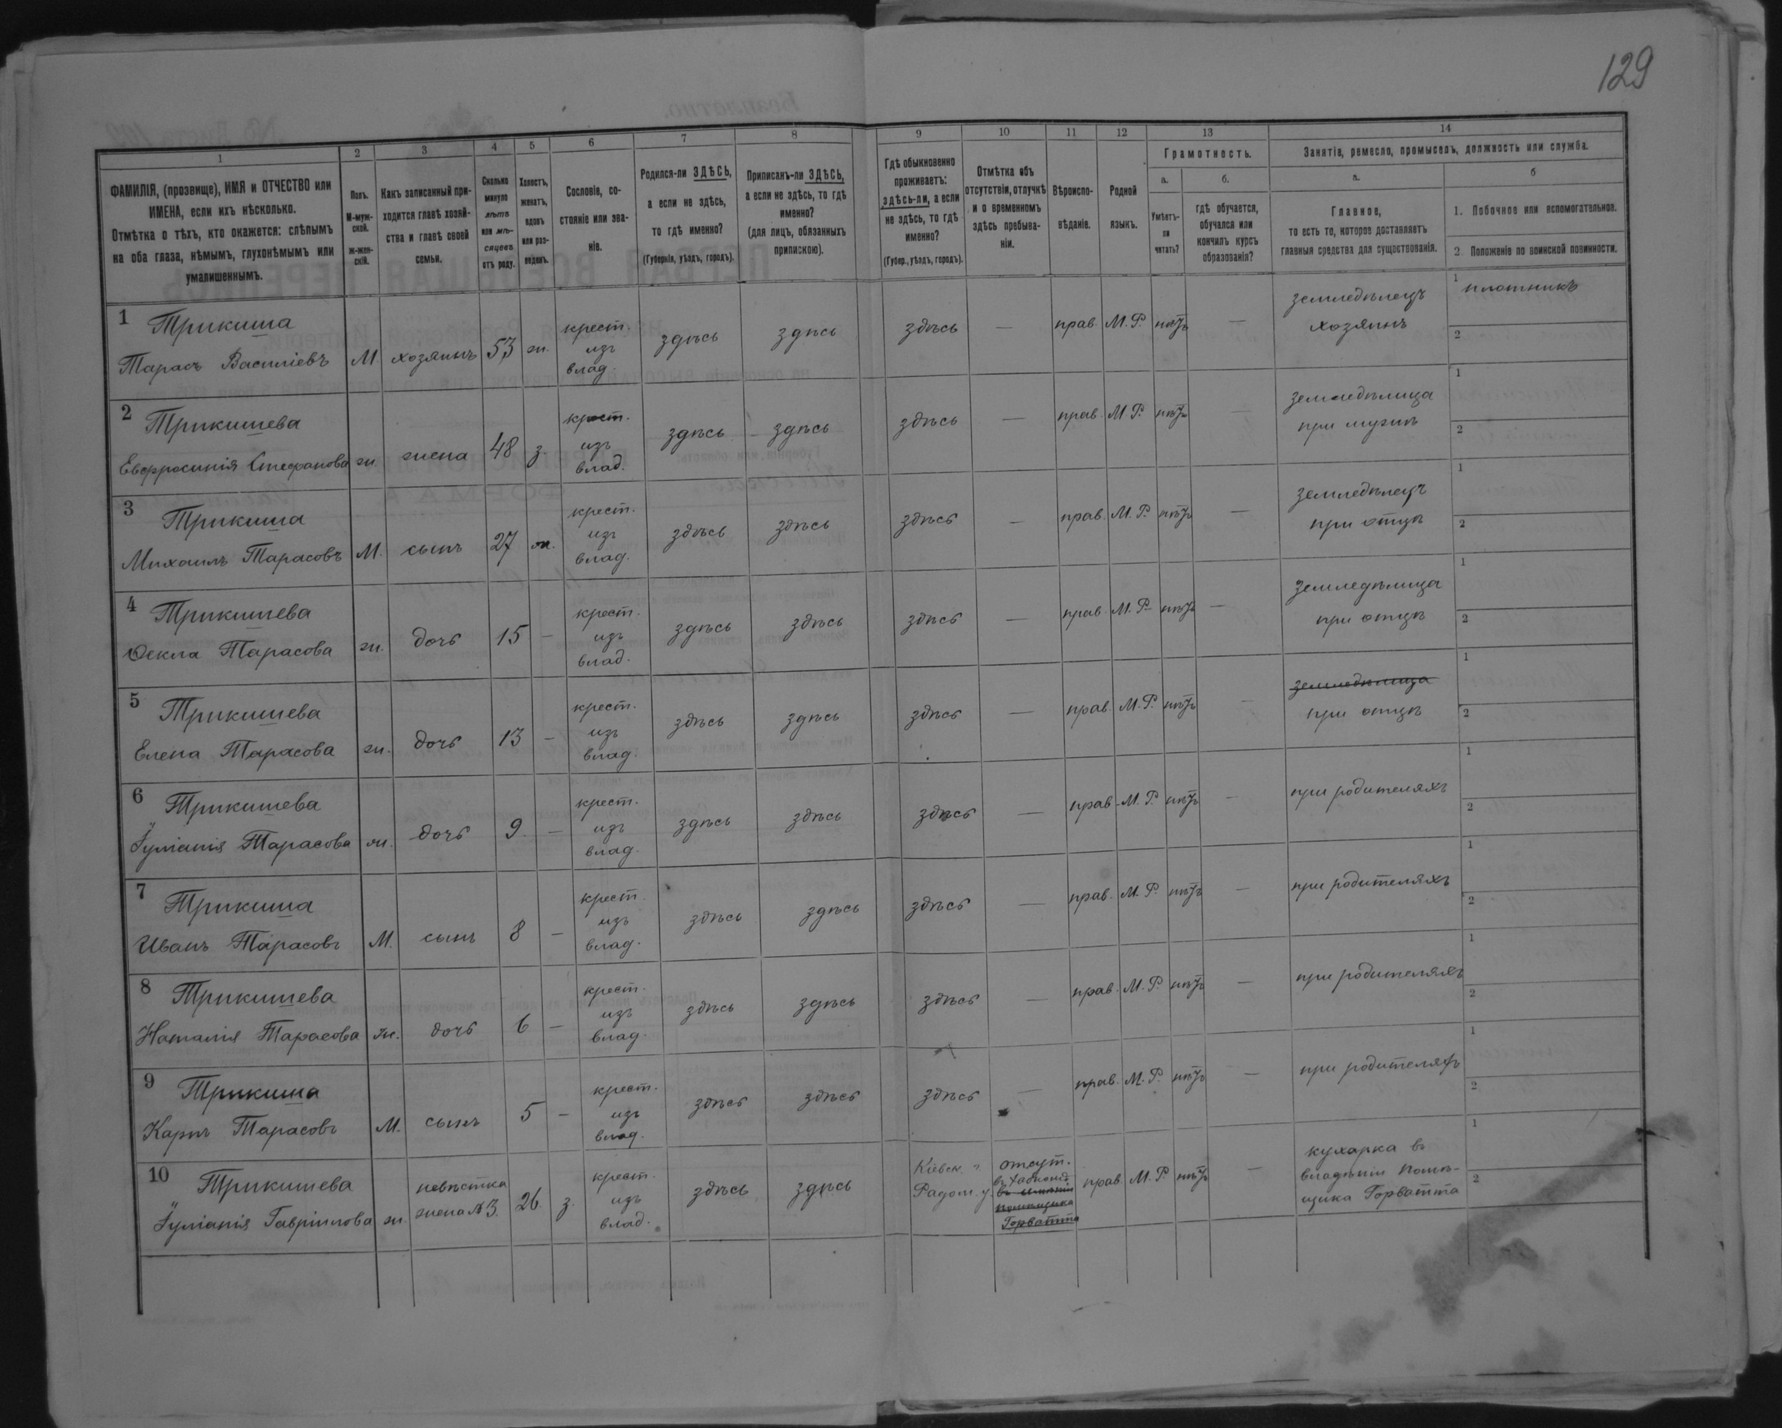 129
1 2 3 4 5 6 7 8 9 10 11 12 13 14
ФАМИЛІЯ, (прозвище), ИМЯ и ОТЧЕСТВО или
ИМЕНА, если ихъ нѣсколько.
Отмѣтка о тѣхъ, кто окажется: слѣпымъ
на оба глаза, нѣмымъ, глухонѣмымъ или
умалишеннымъ.
Полъ.
М-муж-
ской.
Ж-жен-
скій.
Какъ записанный при-
ходится главѣ хозяй-
ства и главѣ своей
семьи.
Сколько
минуло
лѣтъ
или мѣ-
сяцевъ
отъ роду.
Холостъ,
женатъ,
вдовъ
или раз-
веденъ.
Сословіе, со-
стояніе или зва-
ніе.
Родился-ли ЗДѢСЬ,
а если не здѣсь,
то гдѣ именно?
(Губернія, уѣздъ, городъ).
Приписанъ-ли ЗДѢСЬ,
а если не здѣсь, то гдѣ
именно?
(для лицъ, обязанныхъ
припискою).
Гдѣ обыкновенно
проживаетъ:
здѣсь-ли, а если
не здѣсь, то гдѣ
именно?
(Губер., уѣздъ, городъ).
Отмѣтка объ
отсутствіи, отлучкѣ
и о временномъ
здѣсь пребыва-
ніи.
Вѣроиспо-
вѣданіе.
Родной
языкъ.
Грамотность.
а.
Умѣетъ-
ли
читать?
б.
гдѣ обучается,
обучался или
кончилъ курсъ
образованія?
Занятіе, ремесло, промыселъ, должность или служба.
а.
Главное,
то есть то, которое доставляетъ
главныя средства для существованія.
б
1. Побочное или вспомогательное.
2 Положеніе по воинской повинности.
1 Трикиша
Тарасъ Василіевъ М хозяинъ 53 ж. крест. изъ влад. здѣсь здѣсь здѣсь — прав. М.Р. нѣтъ — земледѣлецъ хозяинъ 1 плотникъ 2
2 Трикишева
Евфросинія Стефанова ж. жена 48 з. крест. изъ влад. здѣсь здѣсь здѣсь — прав. М.Р. нѣтъ — земледѣлица при мужѣ 1 2
3 Трикиша
Михаилъ Тарасовъ М. сынъ 27 ж. крест. изъ влад. здѣсь здѣсь здѣсь — прав. М.Р. нѣтъ — земледѣлецъ при отцѣ 1 2
4 Трикишева
Ѳекла Тарасова ж. дочь 15 — крест. изъ влад. здѣсь здѣсь здѣсь — прав. М.Р. нѣтъ — земледѣлица при отцѣ 1 2
5 Трикишева
Елена Тарасова ж. дочь 13 — крест. изъ влад. здѣсь здѣсь здѣсь — прав. М.Р. нѣтъ — земледѣлица при отцѣ 1 2
6 Трикишева
Іуліанія Тарасова ж. дочь 9 — крест. изъ влад. здѣсь здѣсь здѣсь — прав. М.Р. нѣтъ — при родителяхъ 1 2
7 Трикиша
Иванъ Тарасовъ М. сынъ 8 — крест. изъ влад. здѣсь здѣсь здѣсь — прав. М.Р. нѣтъ — при родителяхъ 1 2
8 Трикишева
Наталія Тарасова ж. дочь 6 — крест. изъ влад. здѣсь здѣсь здѣсь — прав. М.Р. нѣтъ — при родителяхъ 1 2
9 Трикиша
Карпъ Тарасовъ М. сынъ 5 — крест. изъ влад. здѣсь здѣсь здѣсь — прав. М.Р. нѣтъ — при родителяхъ 1 2
10 Трикишева
Іуліанія Гавріилова ж. невѣстка жена №3. 26 з. крест. изъ влад. здѣсь здѣсь Кіевск. г. Радом. у. отсут. въ имѣніи помѣщика Горватта прав. М.Р. нѣтъ — кухарка въ владѣніи помѣщика Горватта 1 2